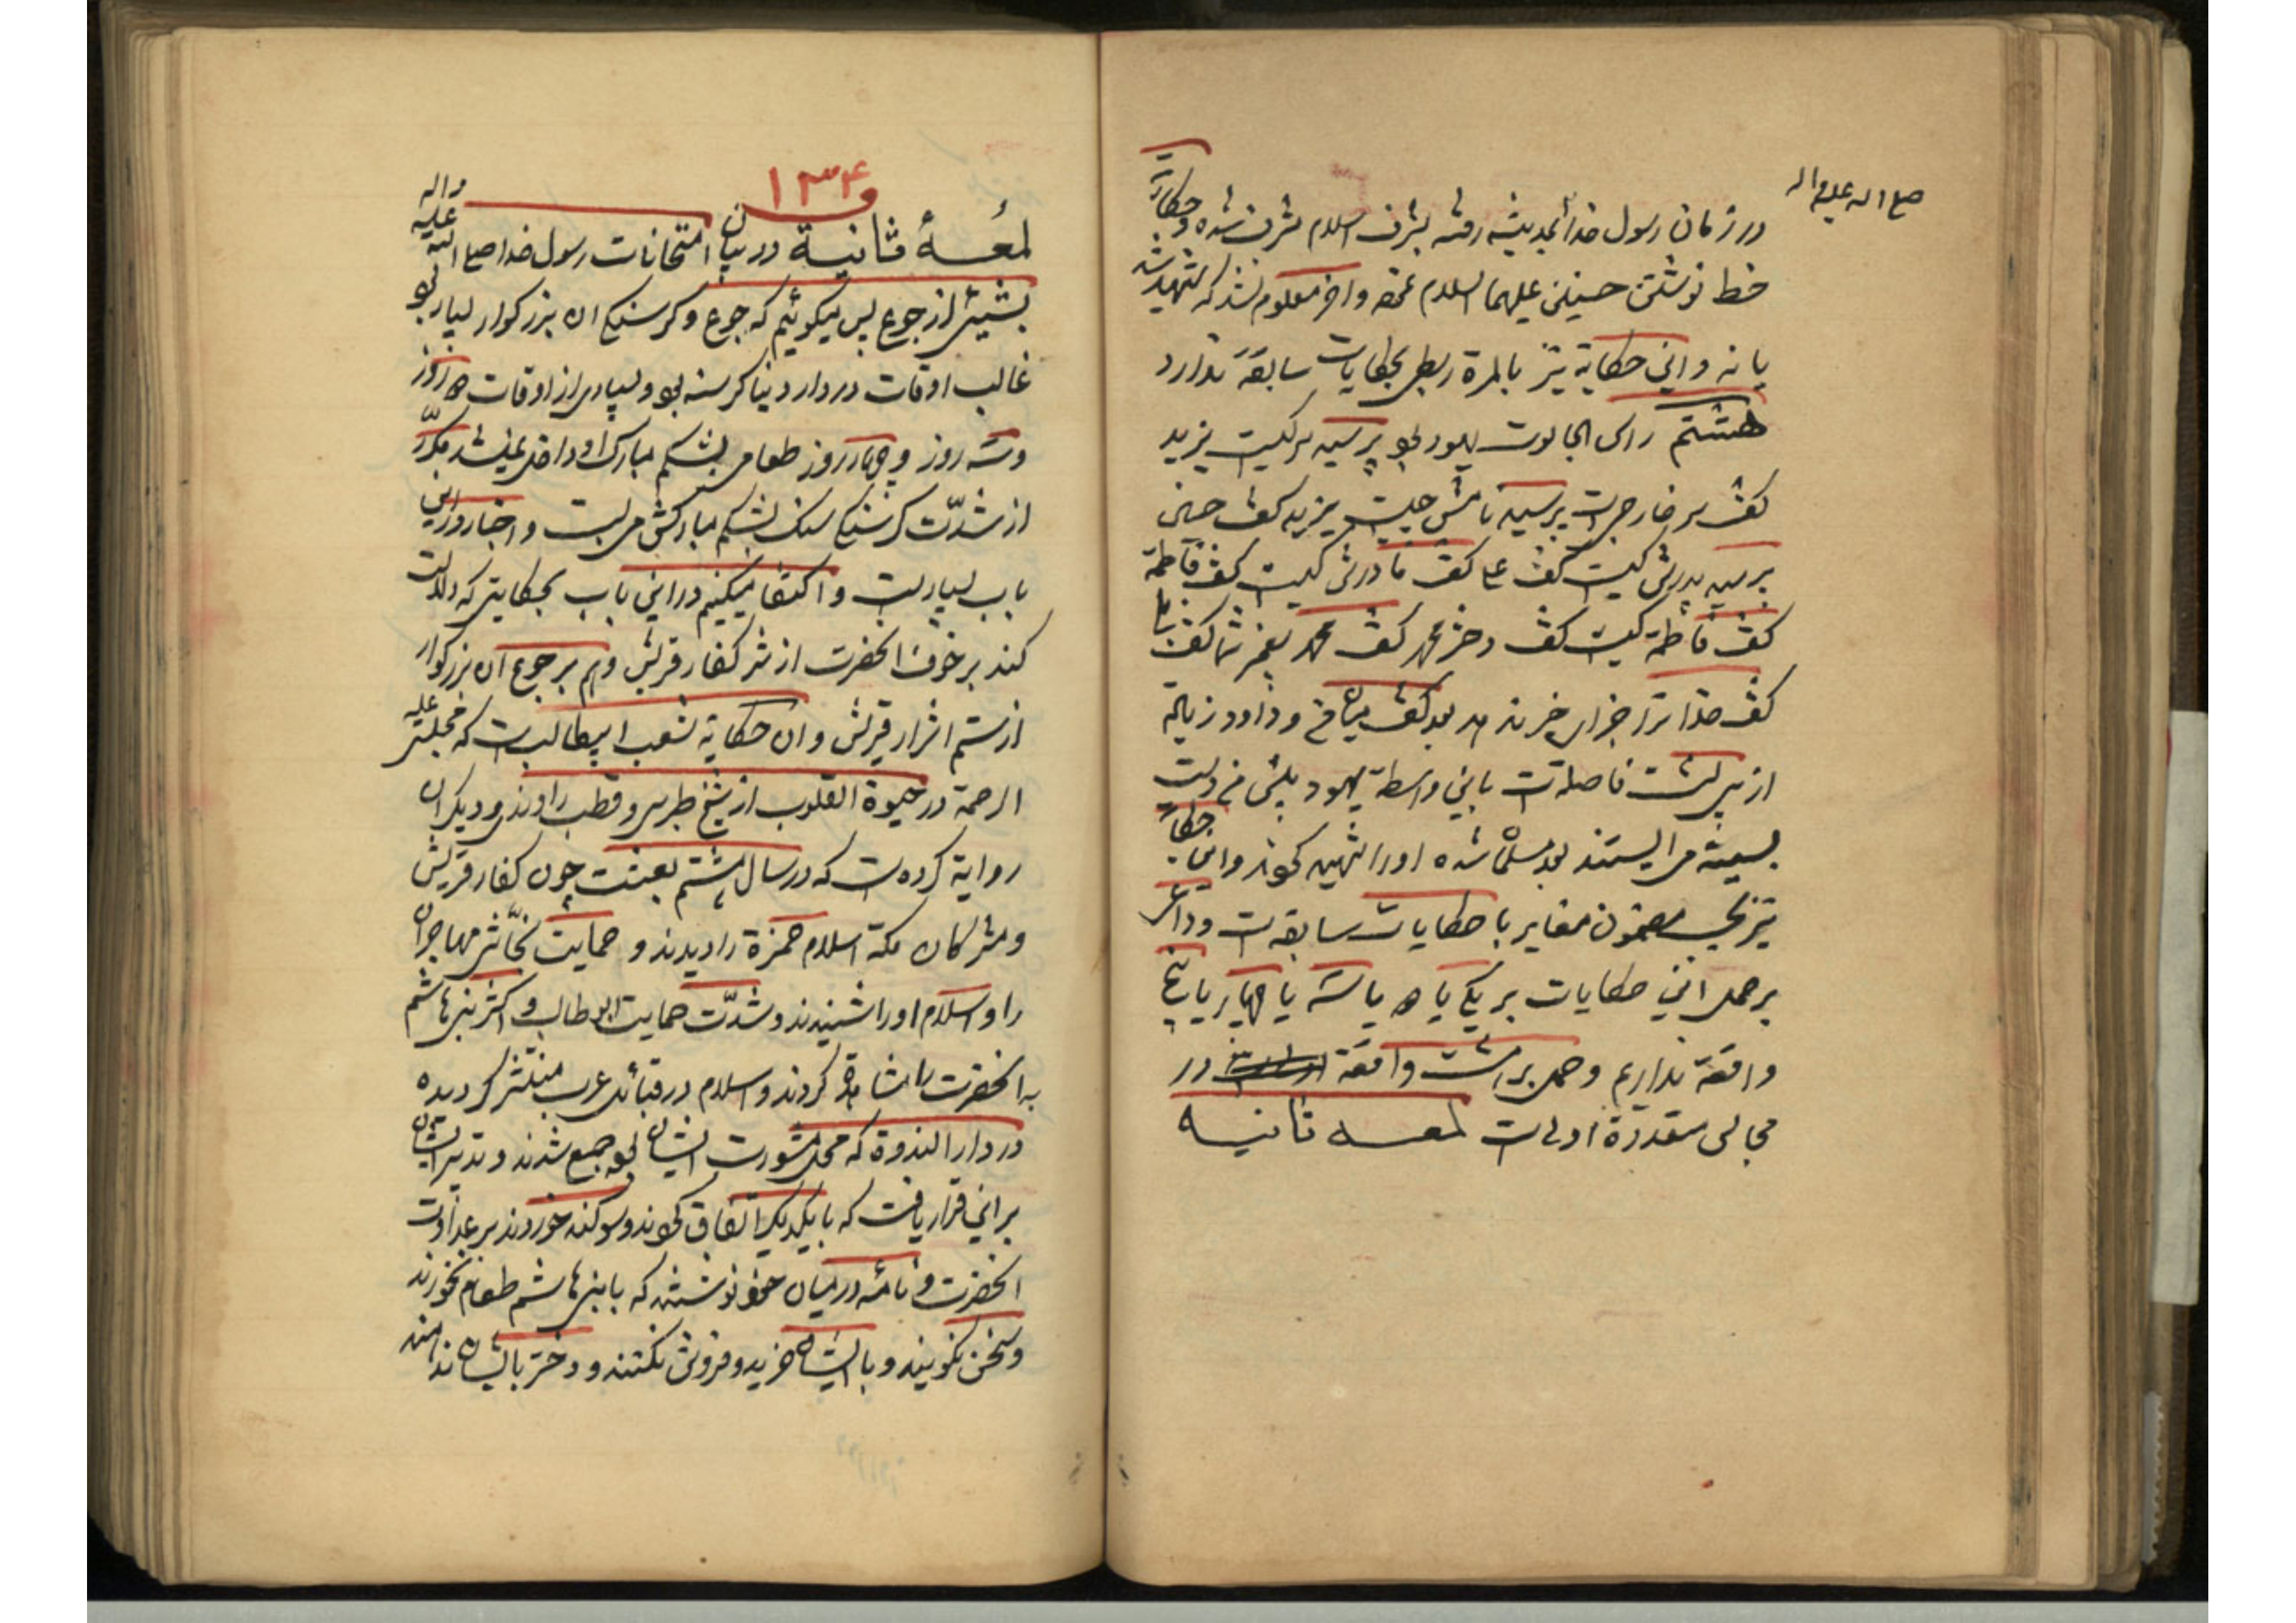 صلی الله علیه و اله
در زمان رسول خدا بمدینه رفته بشرف اسلام مشرف شده و حکایة
خط نوشتن حسنین علیهما السلام و اخر معلوم نشد که شهید شد
یا نه و این حکایة نیز بالمرة ربطی بحکایات سابقه ندارد
هشتم راس الجالوت یهود بود پرسید سر کیست یزید
کفت سر خارجی است پرسید نامش چیست یزید کفت حسین
پرسید پدرش کیست کفت علی کفت مادرش کیست کفت فاطمة
کفت فاطمة کیست کفت دختر محمد کفت محمد پیغمبر شما کفت بلی
کفت خدا شما را جزای خیر ندهد بعد کفت میان من و داود زیاده
از سی پشت فاصله است باین واسطة یهود پیش من دست
بسینه می ایستند بعد مسلمان شده او را شهید کردند و این حکایة
نیز بحسب مضمون مغایر با حکایات سابقه است و داعی
بر حمل این حکایات بر یکی یا دو یا سه یا چهار یا پنج
واقعة نداریم و حمل بر هشت واقعة در
مجالس متعددة اولی است لمعه ثانیه
۱۳۴
لمعهٔ ثانیة در بیان امتحانات رسول خدا صلی الله علیه و اله
بشیئی از جوع پس میکوئیم که جوع و کرسنکی ان بزرکوار بسیار بود
غالب اوقات در دار دنیا کرسنه بود و بسیاری از اوقات دو روز
و سه روز و چهار روز طعامی بشکم مبارک او داخل نمیشد مکرّر
از شدّت کرسنکی سنک بشکم مبارکش می بست و اخبار در این
باب بسیار است و اکتفا میکنیم در این باب بحکایتی که دلالت
کند بر خوف انحضرت از شر کفار قریش و هم بر جوع ان بزرکوار
از ستم اشرار قریش و ان حکایة شعب ابیطالب است که مجلسی علیه
الرحمة در حیوة القلوب از شیخ طبرسی و قطب راوندی و دیکران
روایة کرده است که در سال هشتم بعثت چون کفار قریش
و مشرکان مکة اسلام حمزة را دیدند و حمایت نجّاشی مهاجران
را و اسلام او را شنیدند و شدّت حمایت ابو طالب و اکثر بنی هاشم
به انحضرت را مشاهده کردند و اسلام در قبائل عرب منتشر کردیده
در دار الندوة که محل مشورت ایشان بود جمع شدند و تدبیر ایشان
بر این قرار یافت که با یکدیکر اتفاق کردند و سوکند خوردند بر عداوت
انحضرت و نامه در میان خود نوشتند که با بنی هاشم طعام نخورند
و سخن نکویند و با ایشان خرید و فروش نکنند و دختر بایشان ندهند